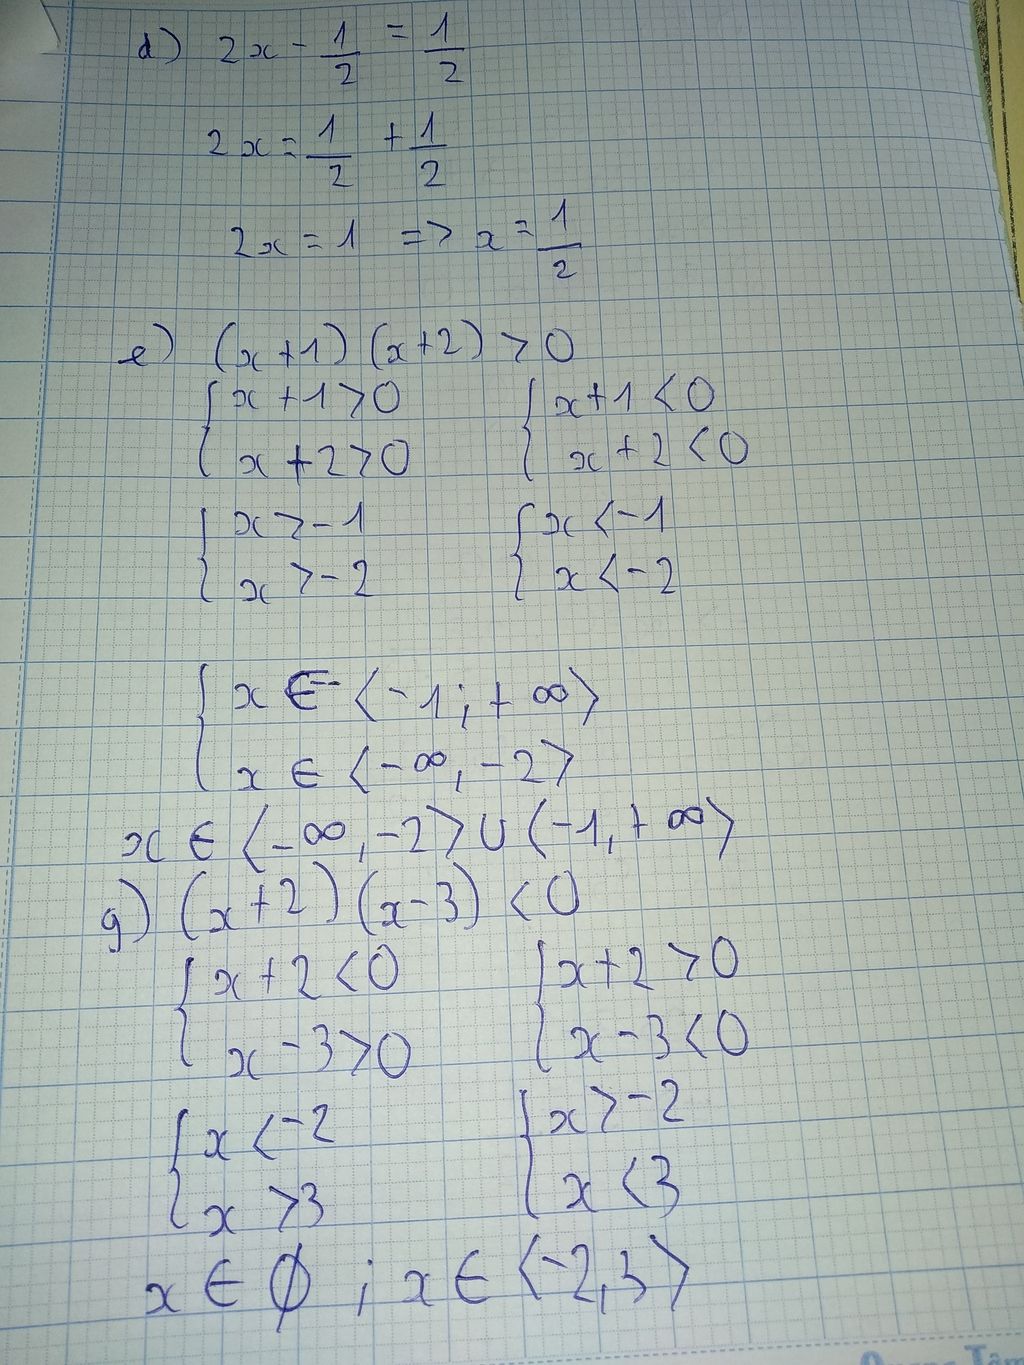 d) 2x - 1/2 = 1/2
2x = 1/2 + 1/2
2x = 1 => x = 1/2
e) (x+1) (x+2) > 0
{ x+1>0 { x+1<0
x+2>0 x+2<0
{ x>-1 { x<-1
x>-2 x<-2
{ x ∈ <-1; +∞>
x ∈ <-∞, -2>
x ∈ <-∞, -2> ∪ (-1, +∞>
g) (x+2) (x-3) < 0
{ x+2<0 { x+2>0
x-3>0 x-3<0
{ x<-2 { x>-2
x>3 x<3
x ∈ ∅ ; x ∈ <-2,3>